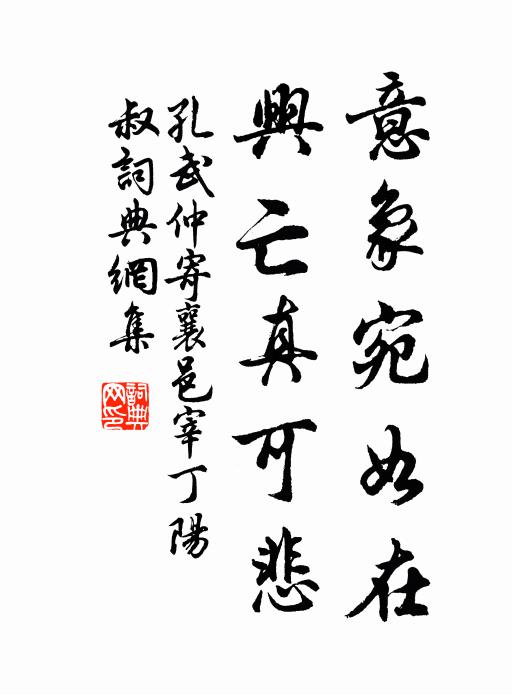 意象宛如在
興亡真可悲
孔武仲寄襄邑宰丁陽
叔詞典網集
詞典
网印